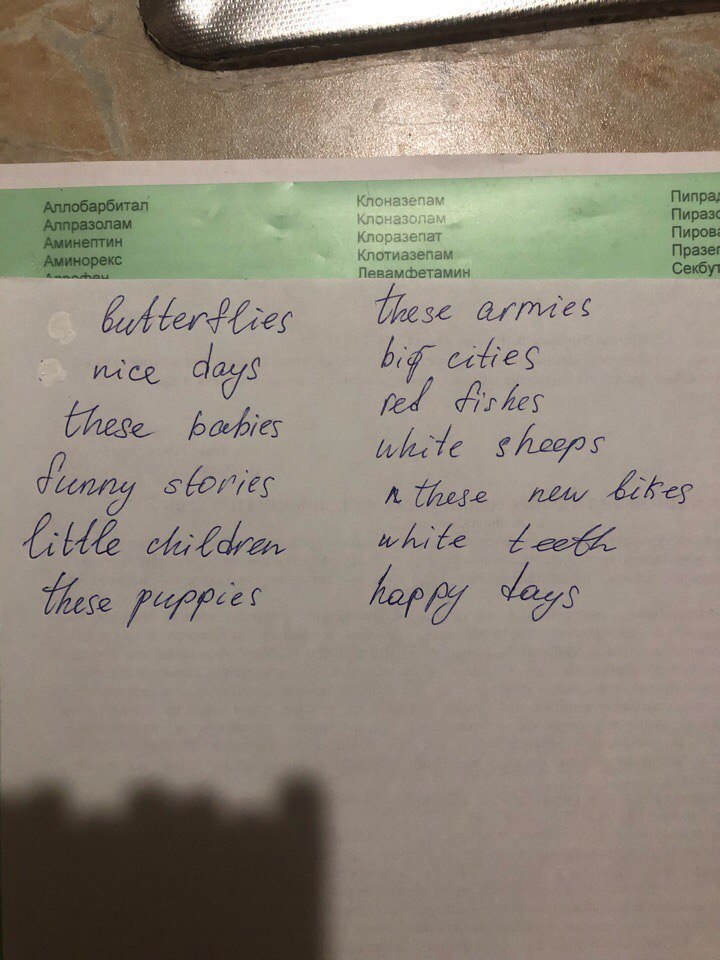 Аллобарбитал
Алпразолам
Аминептин
Аминорекс
Клоназепам
Клоназолам
Клоразепат
Клотиазепам
Левамфетамин
Пипрад
Пиразо
Пирова
Празеп
Секбут
butterflies
nice days
these babies
funny stories
little children
these puppies
these armies
big cities
red fishes
white sheeps
these new bikes
white teeth
happy days